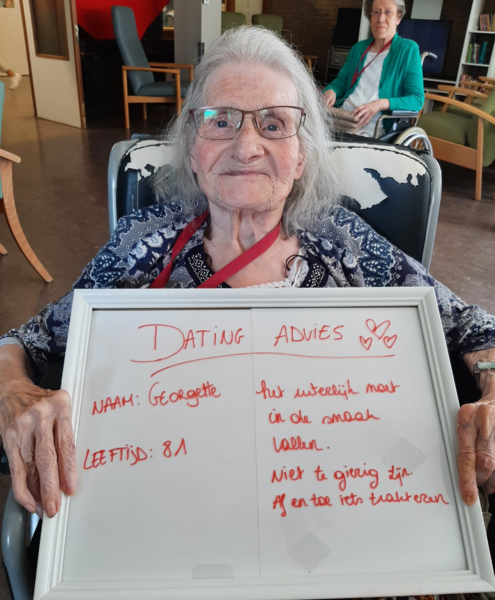 DATING ADVIES
NAAM: GEORGETTE
LEEFTIJD: 81
het uiterlijk moet
in de smaak
vallen.
Niet te gierig zijn.
Af en toe iets trakteren